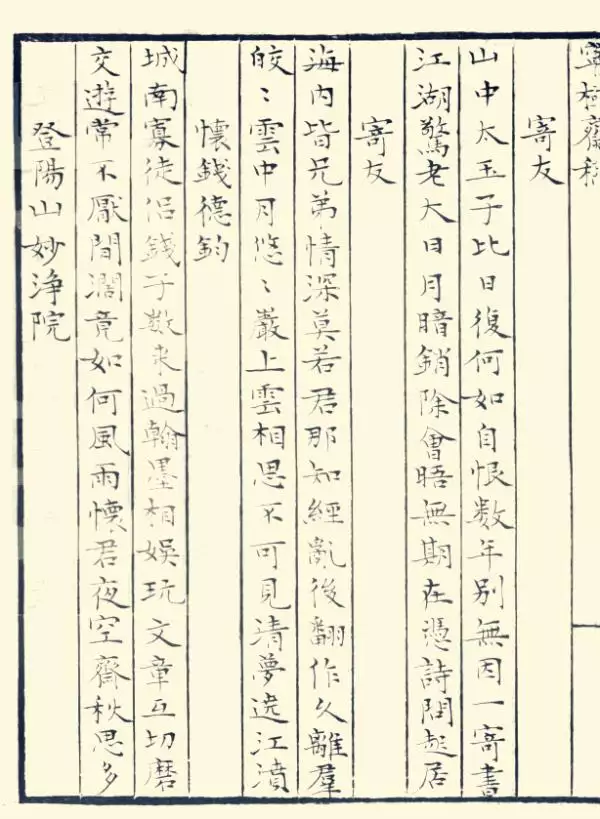 寄友
山中太玉子比日復何如自恨数年别無因一寄書
江湖驚老大日月暗銷除會晤無期在憑詩問起居
寄友
海内皆兄弟情深莫若君那知經亂後翻作久離羣
皎〻雲中月悠〻巖上雲相思不可見清夢遶江濆
懷錢德鈞
城南寡徒侣錢子数来過翰墨相娛玩文章互切磨
交遊常不厭間濶竟如何風雨懷君夜空齋秋思多
登陽山妙淨院